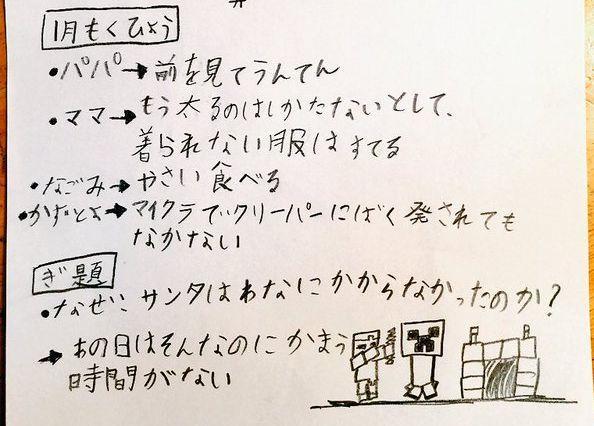 1月もくひょう
・パパ→前を見てうんてん
・ママ→もう太るのはしかたないとして、
着られない服はすてる
・なごみ→やさい食べる
・かずとよ→マイクラでクリーパーにばく発されても
なかない
ぎ題
・なぜ、サンタはわなにかからなかったのか?
→あの日はそんなのにかまう
時間がない